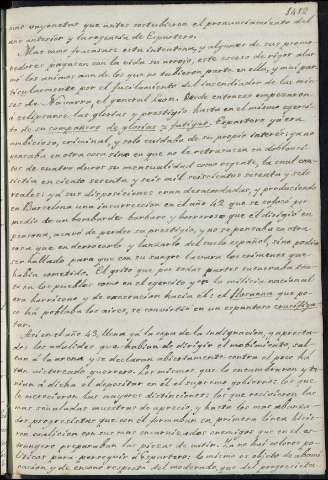 1412
mas bayonetas que antes sostubieron el pronunciamiento del
año anterior y la regencia de Espartero.
Mas como fracasase esta intentona, y algunos de sus promo-
vedores pagasen con la vida su arrojo, este esceso de rigor alar-
mó los animos aun de los que no tubieron parte en ella, y mui par-
ticularmente por el fusilamiento del
ses de Navarra, el general Leon. Desde entonces empezaron
á eclipsarse las glorias y prestigio hasta en el mismo egerci-
to de su compañero de glorias y fatigas. Espartero ya era
ambicioso, criminal, y solo cuidaba de su propio interés: ya no
pensaba en otra cosa sino en que no le retrasasen su
de cuatro duros su mensualidad como regente, la cual con-
sistia en ciento sesenta y seis mil seiscientos sesenta y seis
reales: ya sus disposiciones eran desacordadas, y produciendo
en Barcelona una insurreccion en el año 42 que se sofocó por
medio de un bombardeo barbaro y horroroso que el dirigió en
persona, acavó de perder su prestigio, y no se pensaba en otra
cosa que en derrocarlo y lanzarlo del suelo español, sino podia
ser hallado, para que con su sangre lavara los crimenes que
habia cometido. El grito que por todas partes resonaba tan-
to en los pueblos como en el egercito y en la milicia nacional
era horrisono y de execracion hacia él: el Hosanna que po-
co há poblaba los aires, se convirtió en un espantoso crucifige
tur.
Asi en el año 43, llena yá la copa de la indignacion, y apresta-
dos los adalides que habian de dirigir el mobimiento, sal-
tan á la arena y se declaran abiertamente contra el poco há
tan victoreado guerrero. Los mismos que lo encumbraron y te-
nian á dicha el depositar en él el supremo gobierno: los que
le merecieron las mayores distinciones: los que recivieron las
mas señaladas muestras de aprecio, y hasta los mas abanza-
dos progresistas que con él formaban en primera linea hicie-
ron coalicion con sus mas encarnizados enemigos que en el es-
trangero preparaban las piezas de batir. Ya no hai colores po-
liticos para perseguir á Espartero: lo mismo es objeto de abomi-
nacion, y de encono respecto del moderado, que del progresista